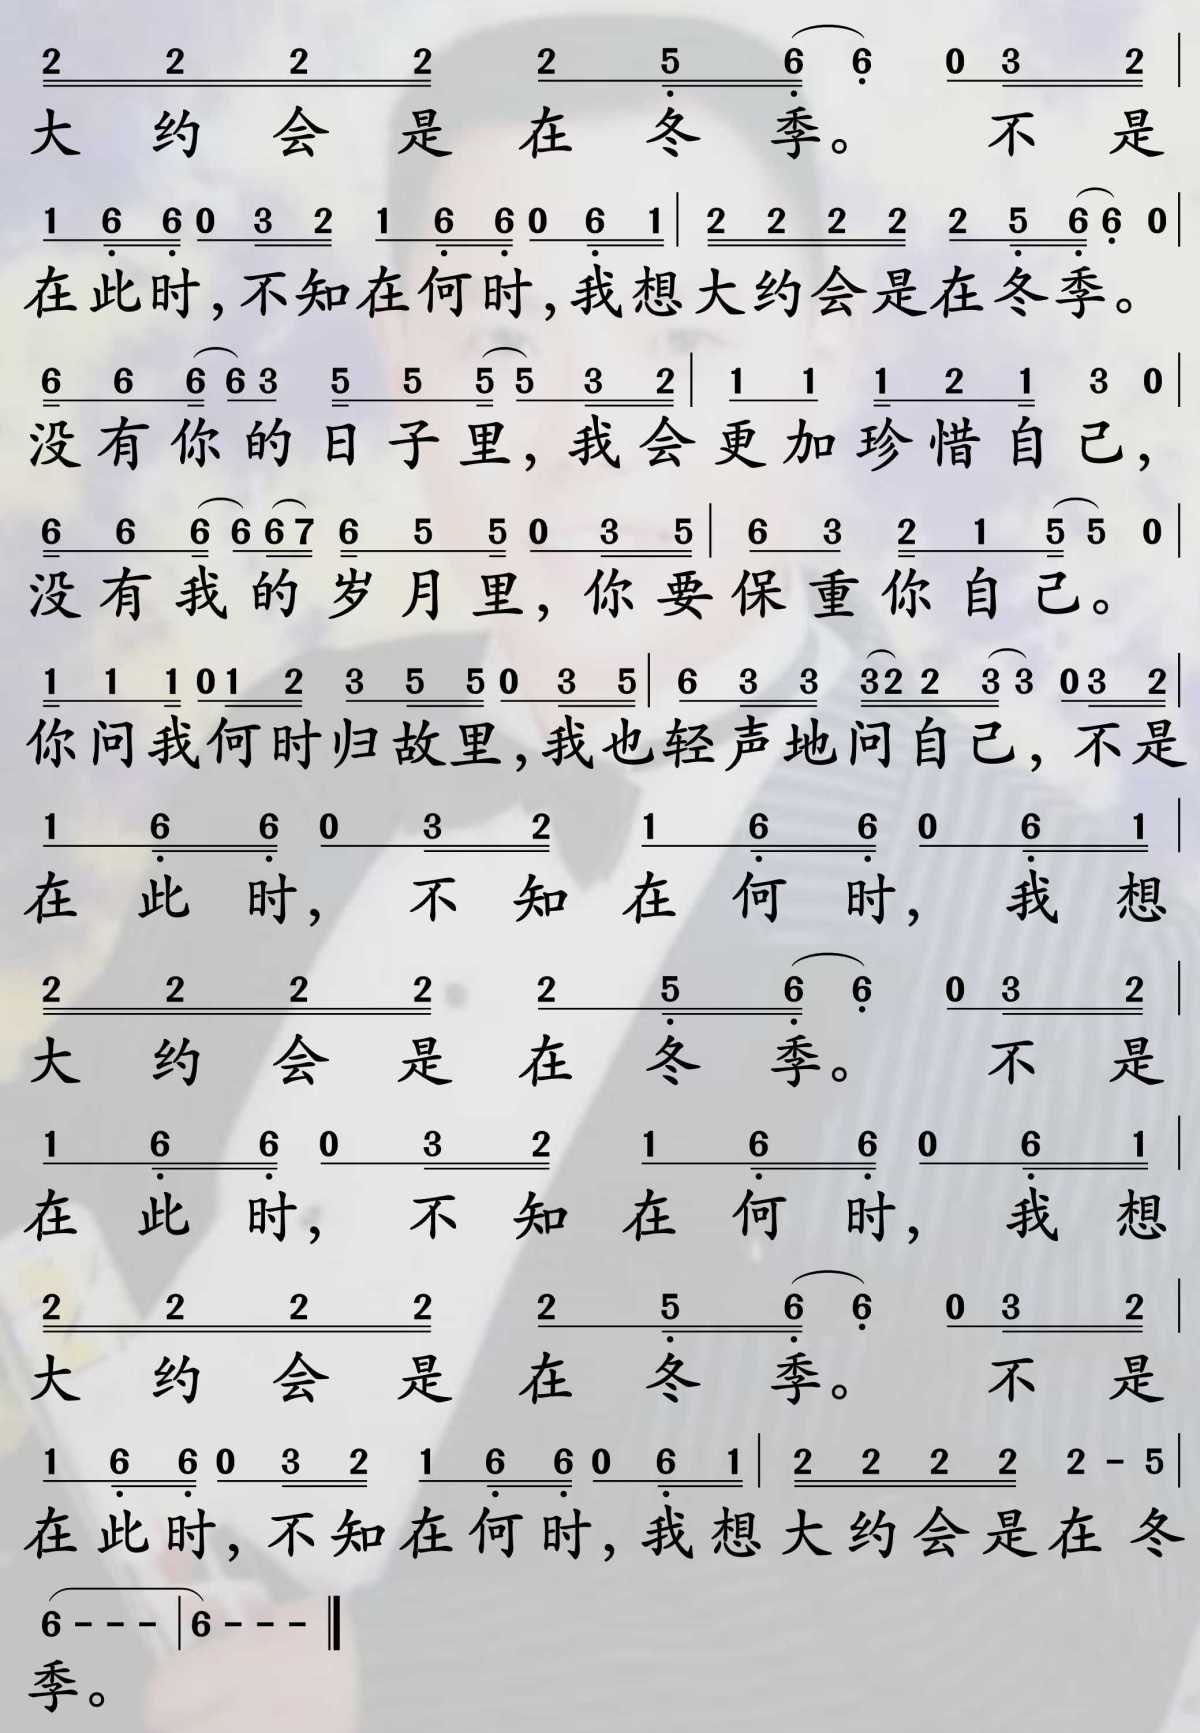 2 2 2 2 2 5 6 6 0 3 2
大约会是在冬季。 不是
1 6 6 0 3 2 1 6 6 0 6 1 2 2 2 2 2 5 6 6 0
在此时,不知在何时,我想大约会是在冬季。
6 6 6 6 3 5 5 5 5 3 2 1 1 1 2 1 3 0
没有你的日子里,我会更加珍惜自己,
6 6 6 6 6 7 6 5 5 0 3 5 6 3 2 1 5 5 0
没有我的岁月里,你要保重你自己。
1 1 1 0 1 2 3 5 5 0 3 5 6 3 3 3 2 2 3 3 0 3 2
你问我何时归故里,我也轻声地问自己,不是
1 6 6 0 3 2 1 6 6 0 6 1
在此时, 不知在何时, 我想
2 2 2 2 2 5 6 6 0 3 2
大约会是在冬季。 不是
1 6 6 0 3 2 1 6 6 0 6 1
在此时, 不知在何时, 我想
2 2 2 2 2 5 6 6 0 3 2
大约会是在冬季。 不是
1 6 6 0 3 2 1 6 6 0 6 1 2 2 2 2 2 - 5
在此时,不知在何时,我想大约会是在冬
6 - - - 6 - - -
季。